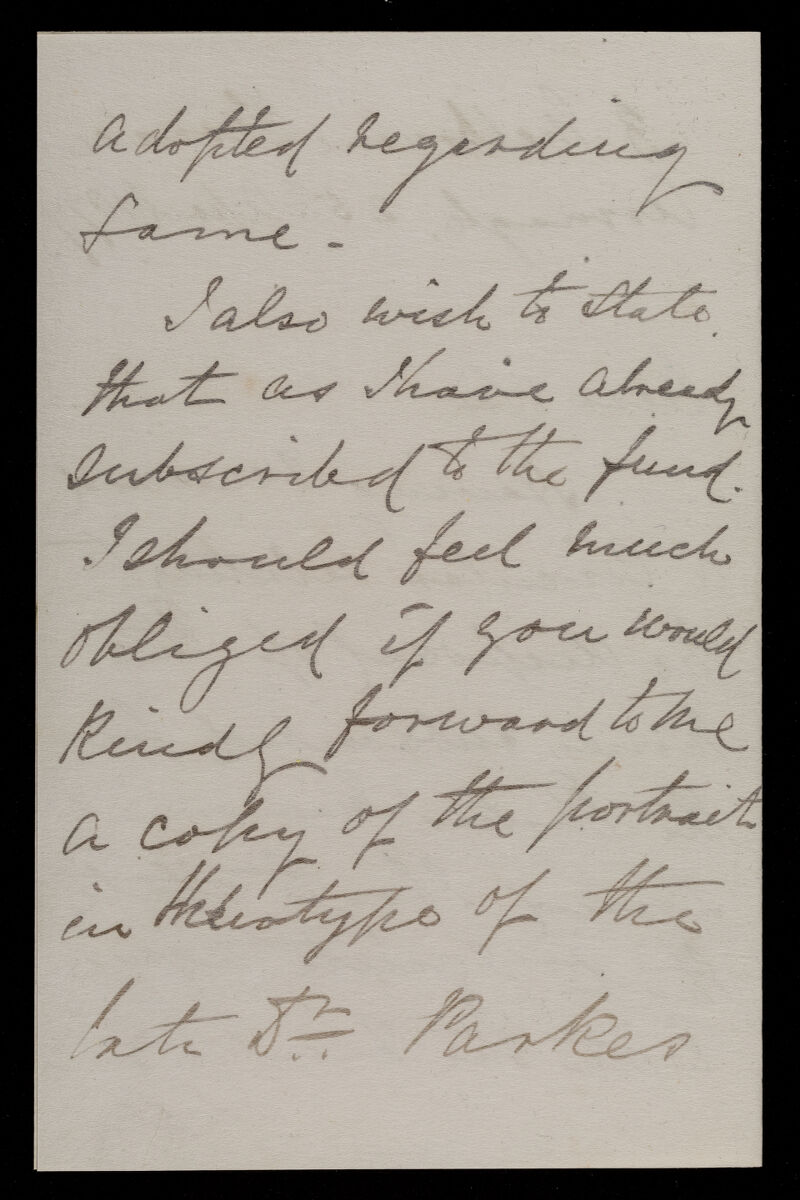 adopted regarding
same -
I also wish to state
that as I have already
subscribed to the fund.
I should feel much
obliged if you would
kindly forward to me
a copy of the portrait
in of the
late Dr. Parkes